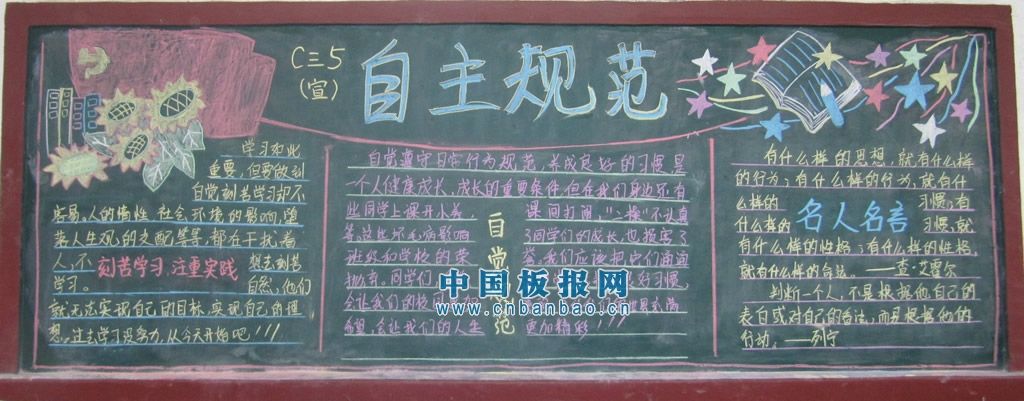 C三5
(宣)
自主规范
学习如此
重要,但要做到
自觉刻苦学习却不
容易,人的惰性,社会环境的影响,堕
落人生观的支配等等,都在干扰着
人,不
想去刻苦
学习。
自然,他们
就无法实现自己的目标,实现自己的理
想。过去学习没努力,从今天开始吧!!!
刻苦学习,注重实践
自觉遵守日常行为规范,养成良好的习惯是
一个人健康成长、成长的重要条件,但在我们身边还有
些同学上课开小差,
课间打闹,“操”不认真
等,这些坏毛病影响
了同学们的成长,也损害了
班级和学校的荣
誉,我们应该把它们通通
抛弃。同学们
好习惯,
会让我们的校园
希望,会让我们的人生
更加精彩!!!
自觉
范
中国板报网
www.cnbanbao.cn
有什么样的思想,就有什么样
的行为;有什么样的行为,就有什
么样的
习惯;有
什么样的
习惯,就
有什么样的性格;有什么样的性格,
就有什么样的命运。——查·艾霍尔
名人名言
判断一个人,不是根据他自己的
表白或对自己的看法,而是根据他的
行动。——列宁